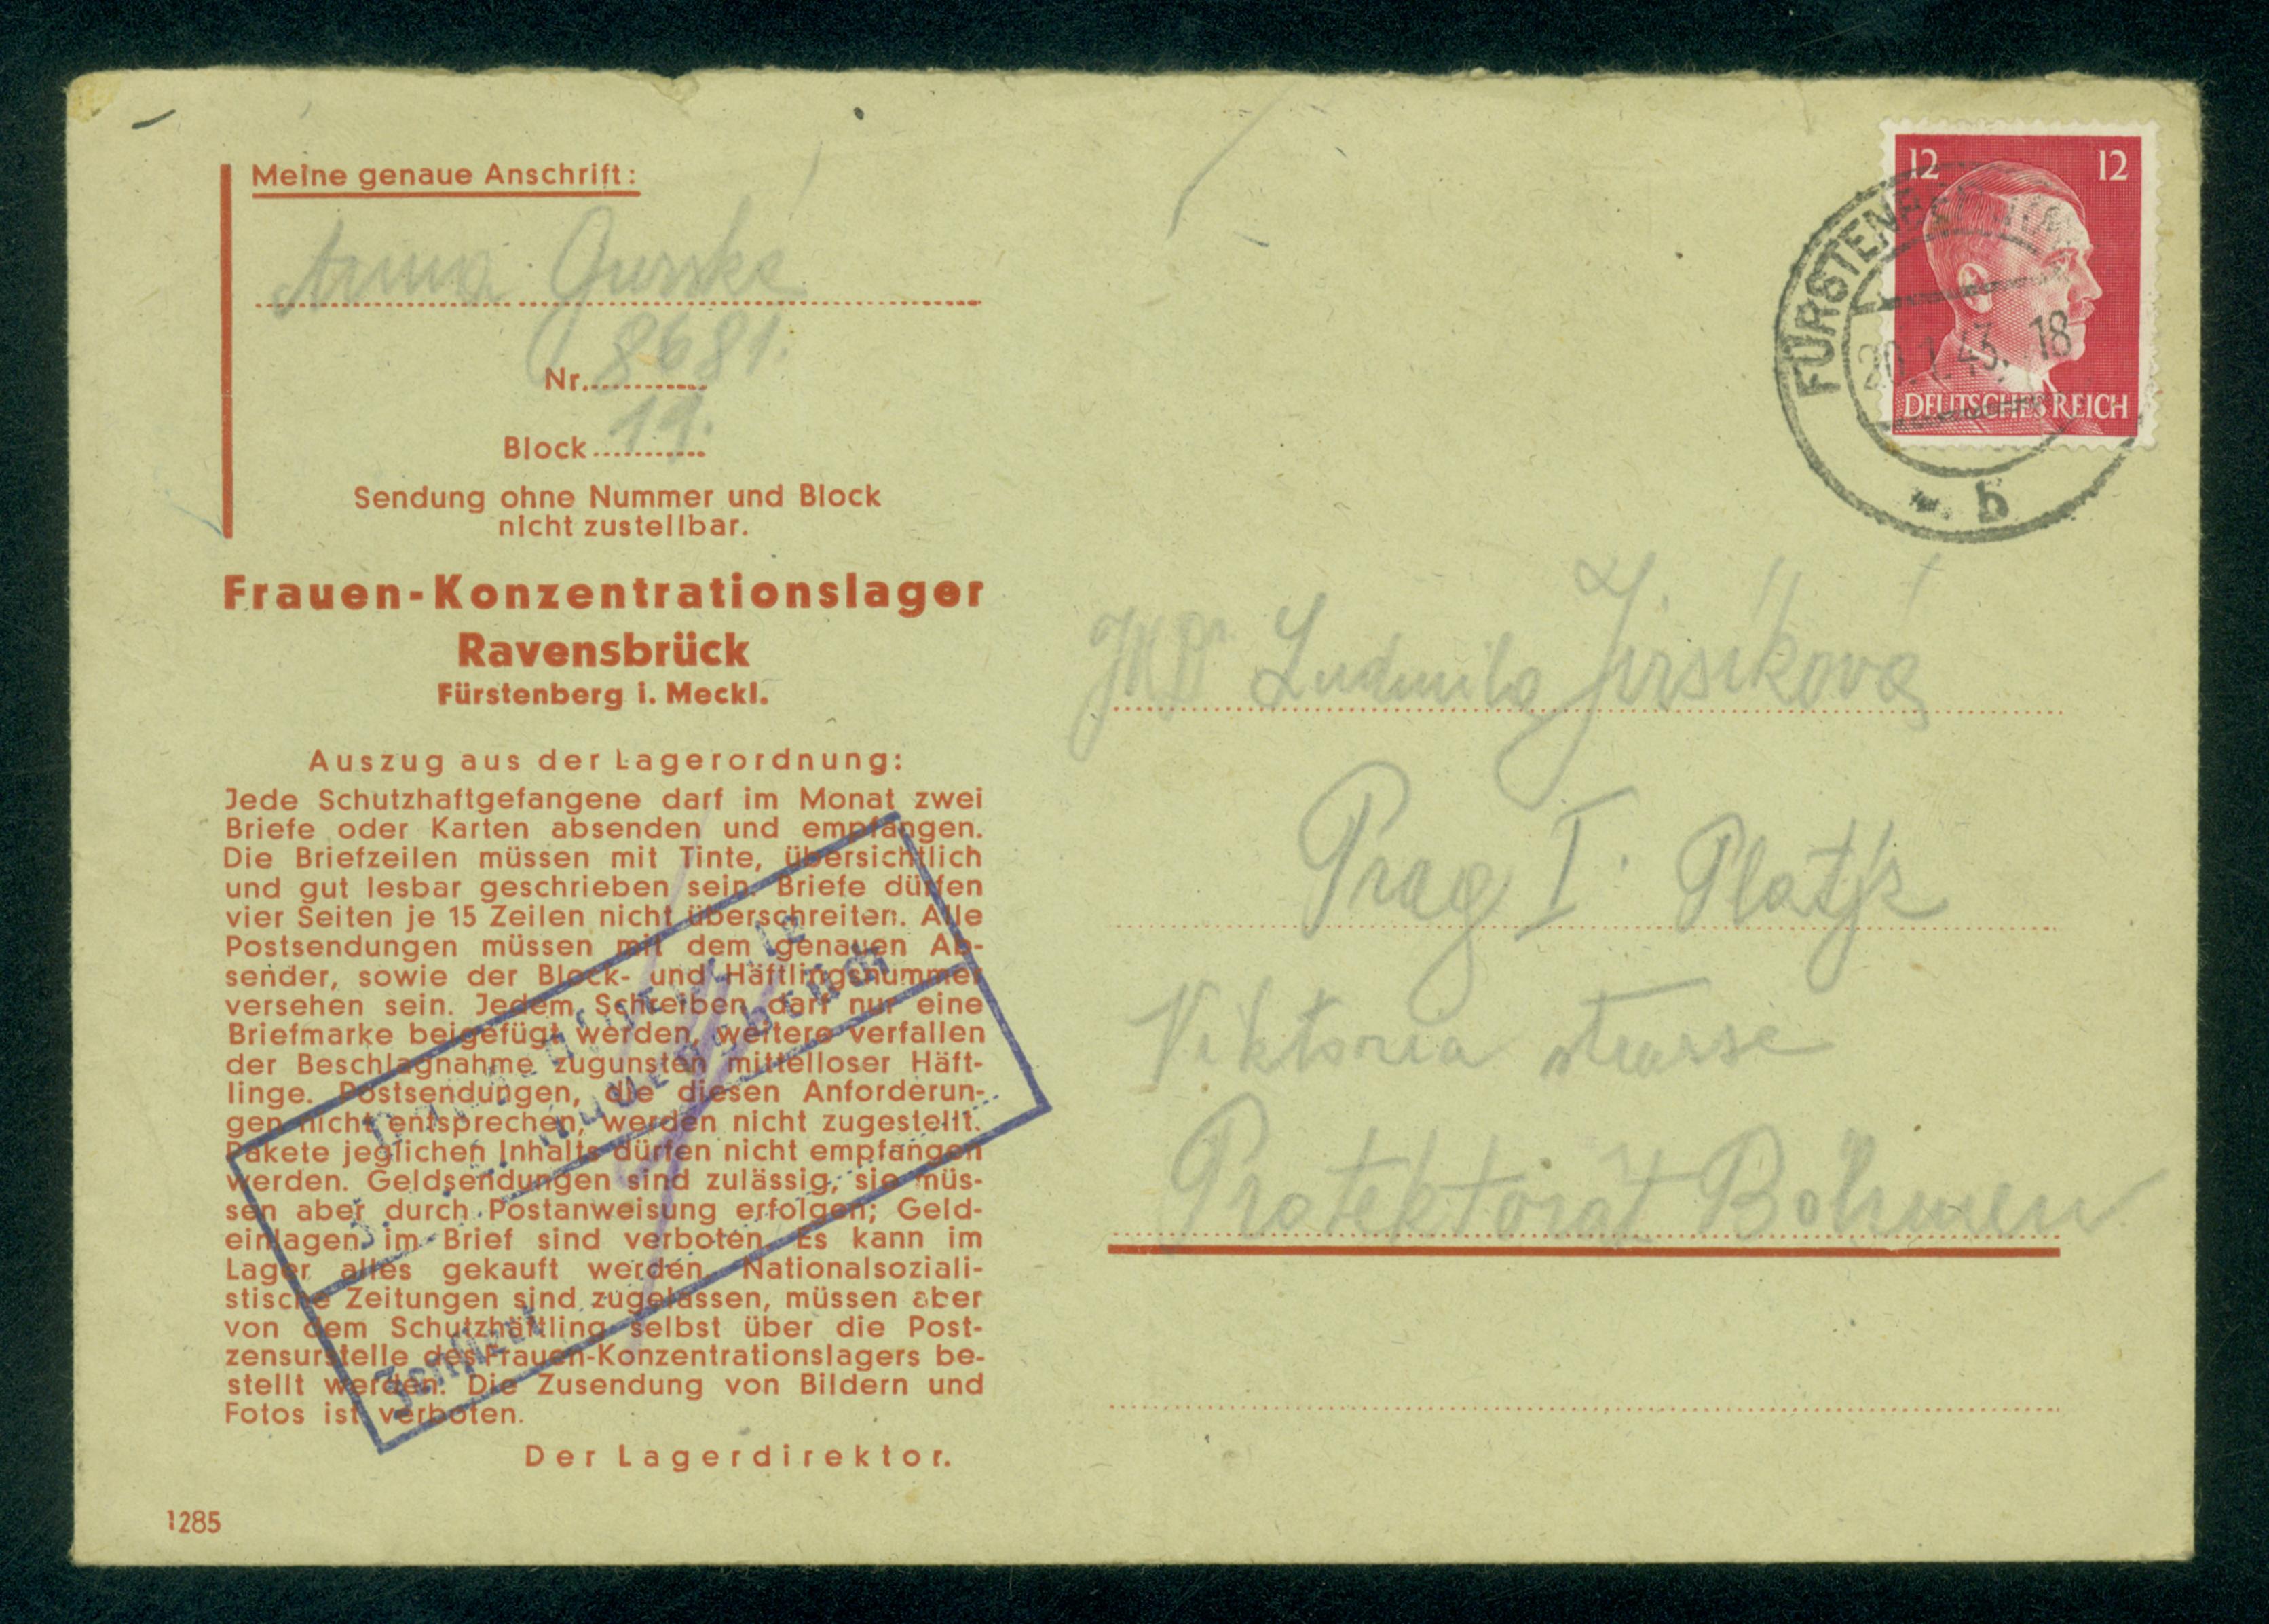 Meine genaue Anschrift:
Anna
Nr. 8681.
Block 11.
Sendung ohne Nummer und Block
nicht zustellbar.
Frauen-Konzentrationslager
Ravensbrück
Fürstenberg i. Meckl.
Auszug aus der Lagerordnung:
Jede Schutzhaftgefangene darf im Monat zwei
Briefe oder Karten absenden und empfangen.
Die Briefzeilen müssen mit Tinte, übersichtlich
und gut lesbar geschrieben sein. Briefe dürfen
vier Seiten je 15 Zeilen nicht überschreiten. Alle
Postsendungen müssen mit dem genauen Ab-
sender, sowie der Block- und Häftlingsnummer
versehen sein. Jedem Schreiben darf nur eine
Briefmarke beigefügt werden, weitere verfallen
der Beschlagnahme zugunsten mittelloser Häft-
linge. Postsendungen, die diesen Anforderun-
gen nicht entsprechen, werden nicht zugestellt.
Pakete jeglichen Inhalts dürfen nicht empfangen
werden. Geldsendungen sind zulässig, sie müs-
sen aber durch Postanweisung erfolgen; Geld-
einlagen im Brief sind verboten. Es kann im
Lager alles gekauft werden. Nationalsoziali-
stische Zeitungen sind zugelassen, müssen aber
von dem Schutzhäftling selbst über die Post-
zensurstelle des Frauen-Konzentrationslagers be-
stellt werden. Die Zusendung von Bildern und
Fotos ist verboten.
Der Lagerdirektor.
1285
Zensiert
12 12
DEUTSCHES REICH
FÜRSTENBERG
20.1.43. 18
b
Ludmila Jirsíková
Prag I. Platýz
Viktoria strasse
Protektorat Böhmen